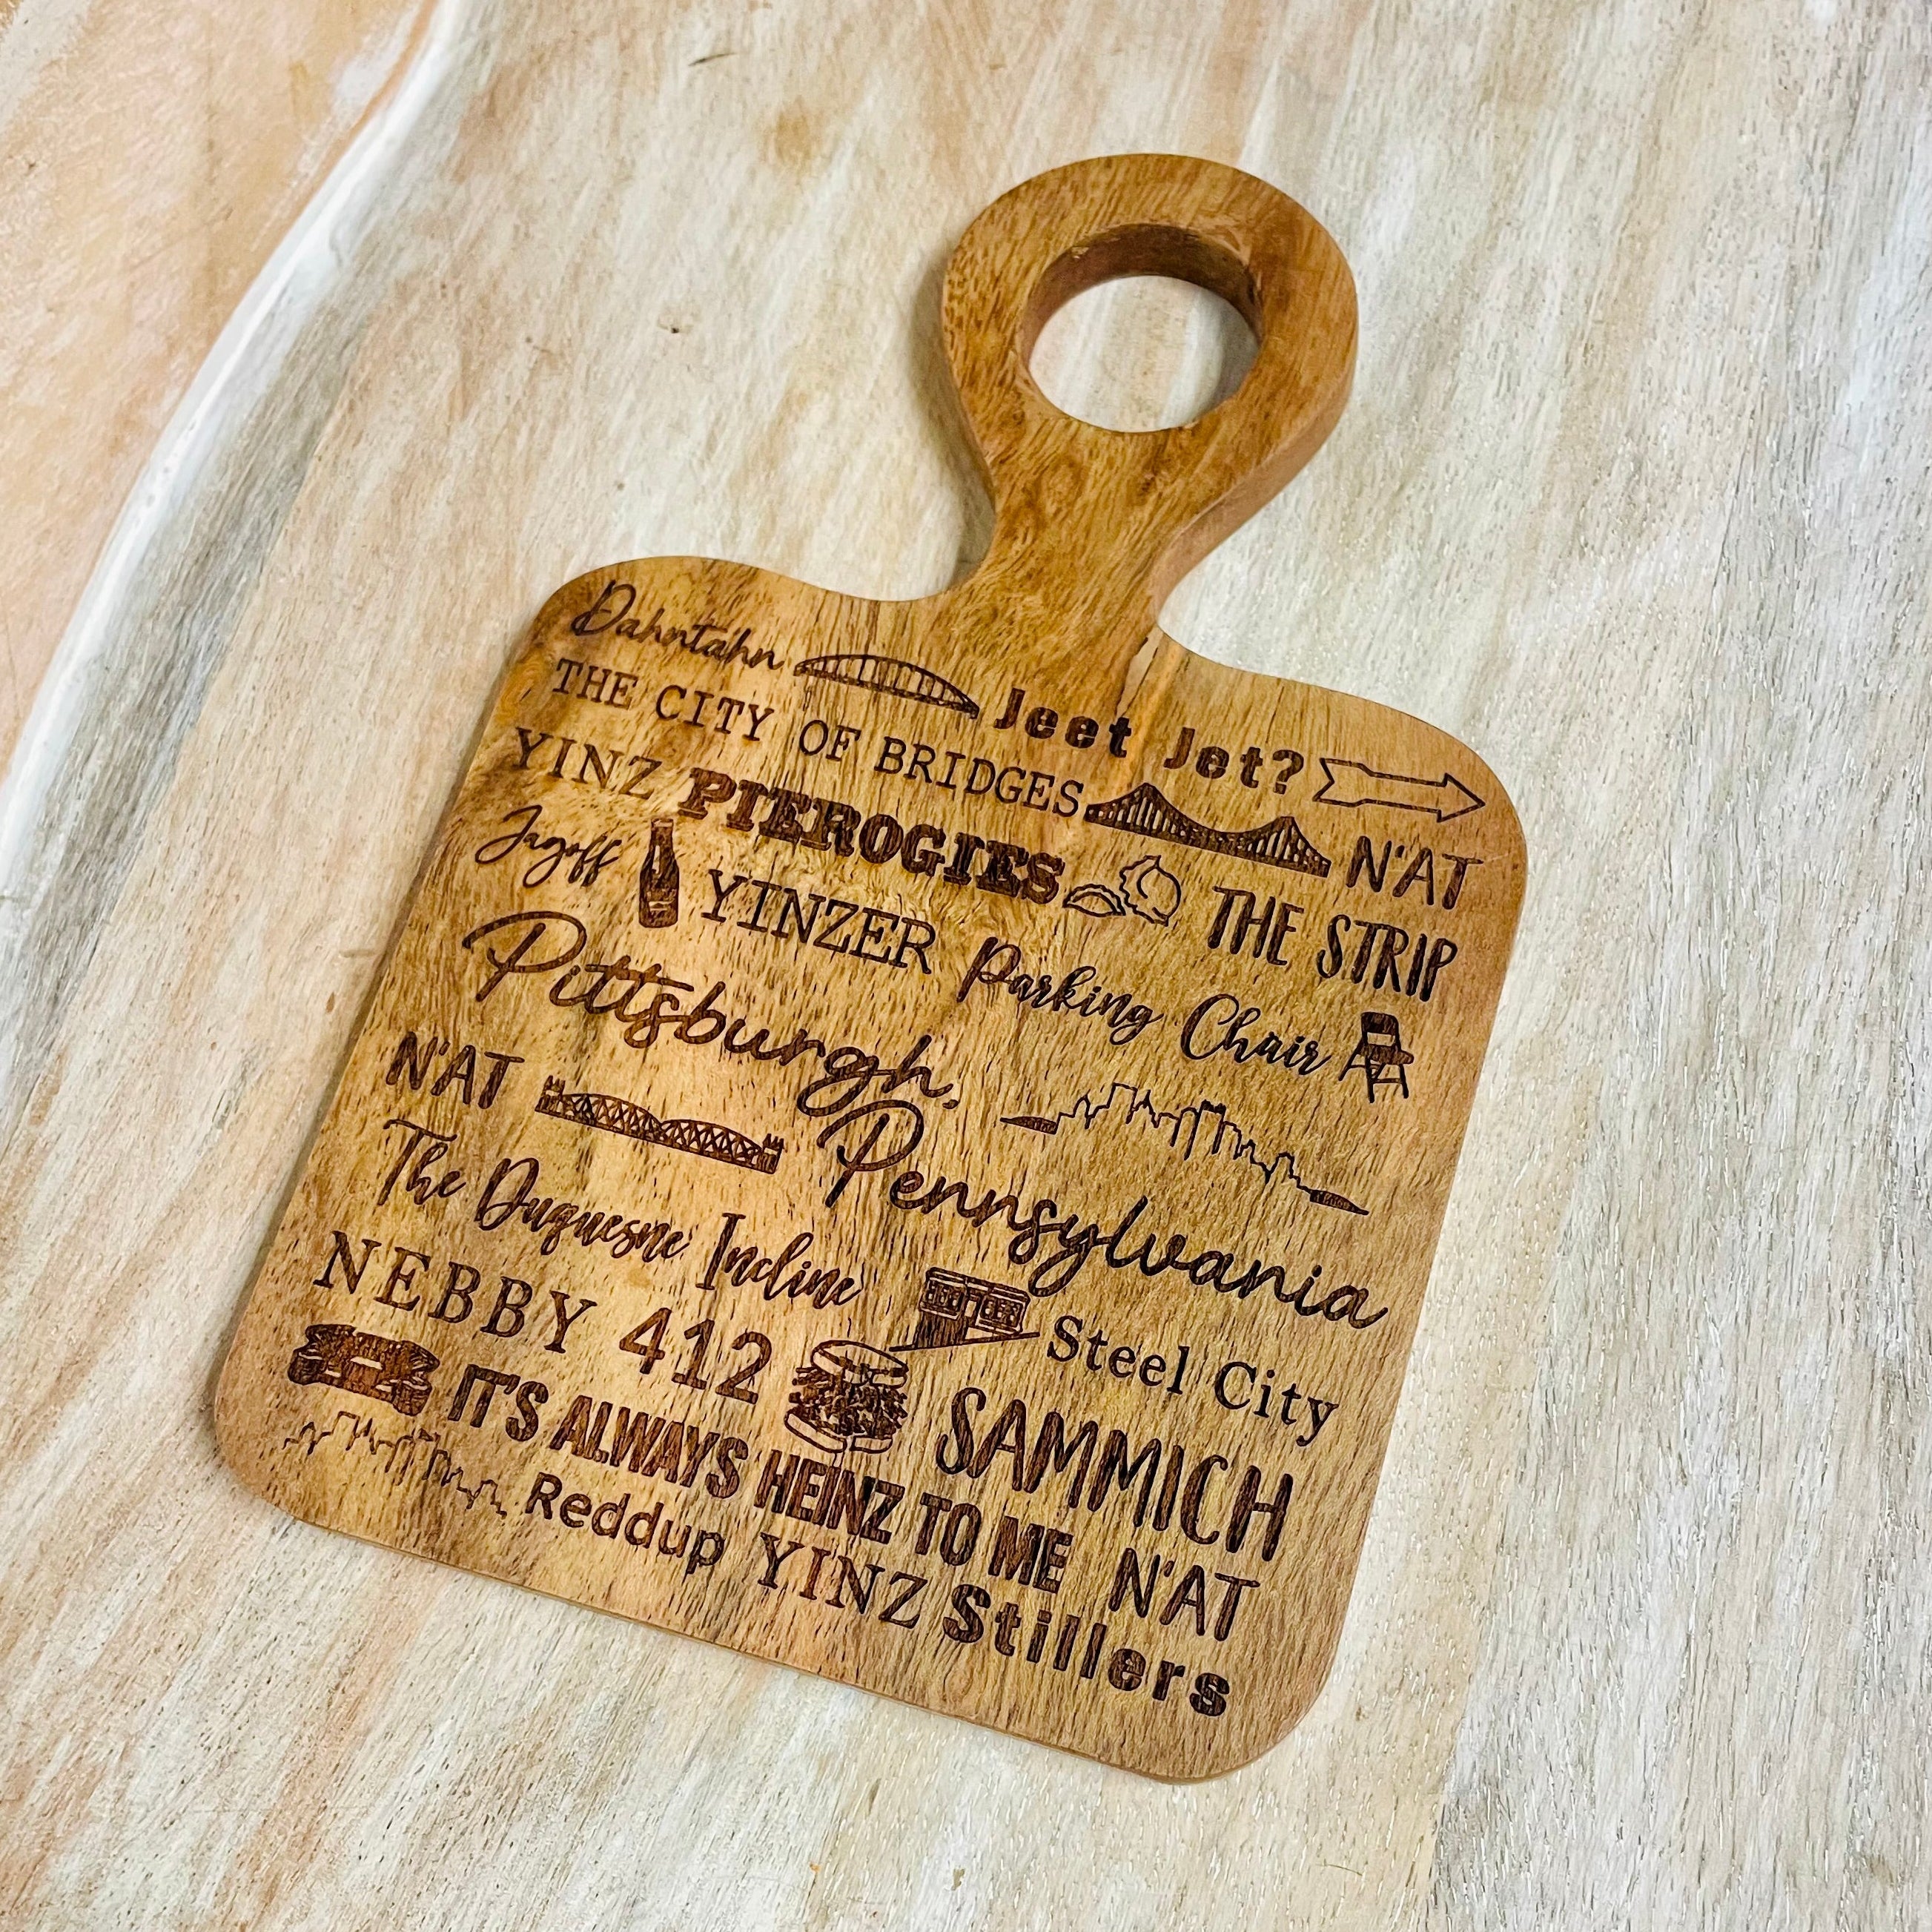 Dahntahn Jeet Jet?
THE CITY OF BRIDGES N'AT
YINZ PIEROGIES THE STRIP
Jagoff YINZER Parking Chair
Pittsburgh,
N'AT Pennsylvania
The Duquesne Incline Steel City
NEBBY 412 SAMMICH
IT'S ALWAYS HEINZ TO ME N'AT
Reddup YINZ Stillers